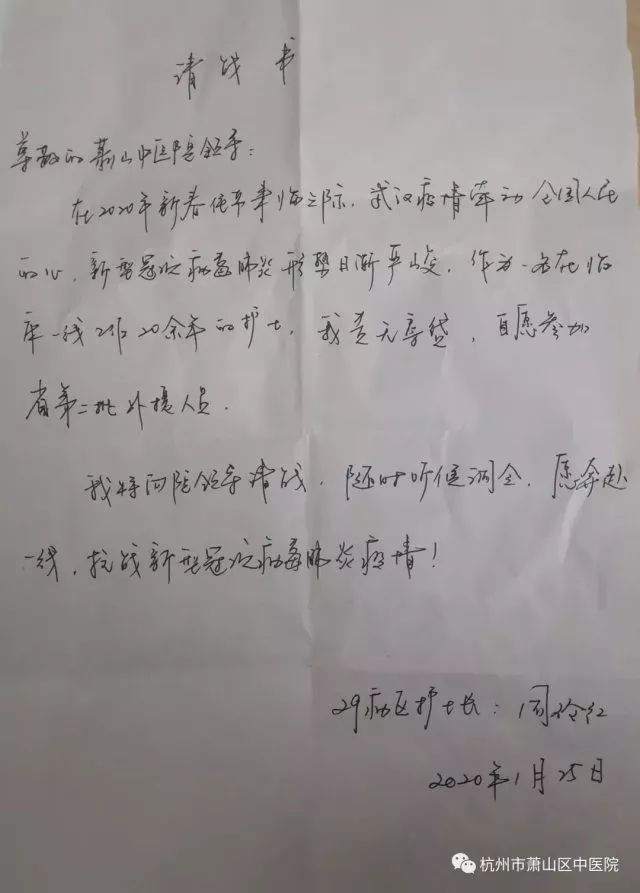 请战书
尊敬的萧山中医院领导:
在2020年新春佳节来临之际,武汉疫情牵动全国人民
的心,新型冠状病毒肺炎形势日渐严峻,作为一名在临
床一线工作20余年的护士,我责无旁贷,自愿参加
省第二批外援人员.
我特向院领导请战,随时听候调令,愿奔赴
一线,抗战新型冠状病毒肺炎疫情!
29病区护士长:
2020年1月25日
杭州市萧山区中医院